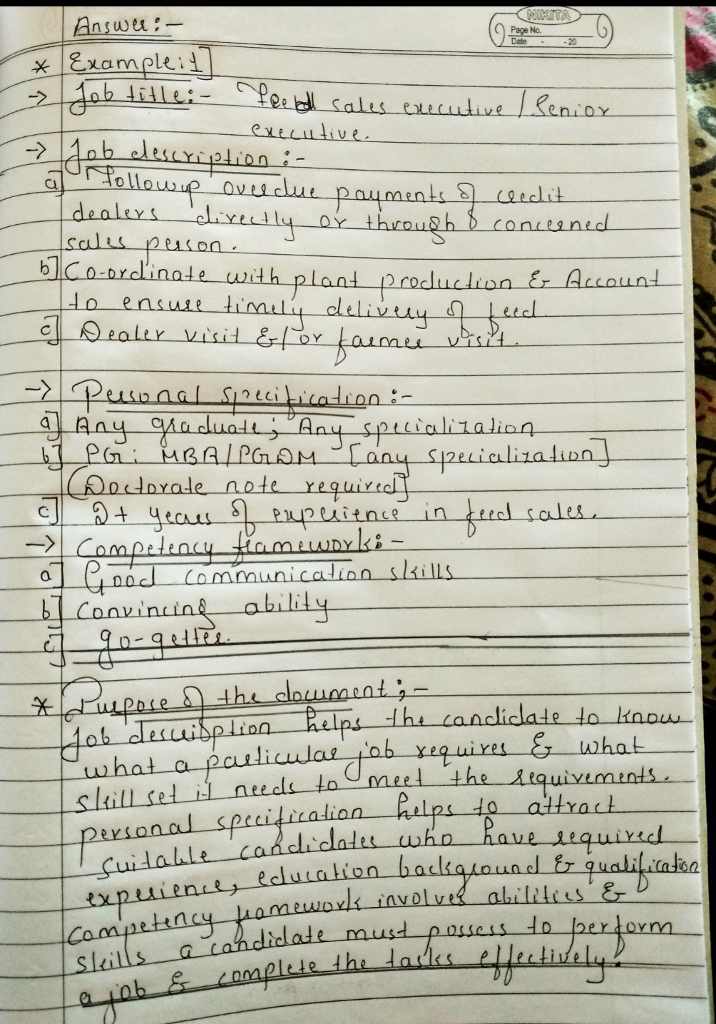 Answer:-
NIKITA
Page No.
Date - -20
* Example:1]
→ Job title:- Feed sales executive / Senior
executive.
→ Job description :-
a] Followup overdue payments of credit
dealers directly or through concerned
sales person.
b] Co-ordinate with plant production & Account
to ensure timely delivery of feed
c] Dealer visit &/or farmer visit.
→ Personal specification :-
a] Any graduate; Any specialization
b] PG: MBA/PGDM [any specialization]
(Doctorate note required]
c] 2+ years of experience in feed sales.
→ Competency framework:-
a] Good communication skills
b] Convincing ability
c] go-getter.
* Purpose of the document ;-
Job description helps the candidate to know
what a particular job requires & what
skill set it needs to meet the requirements.
personal specification helps to attract
suitable candidates who have required
experience, education background & qualification
Competency framework involves abilities &
skills a candidate must possess to perform
a job & complete the tasks effectively.